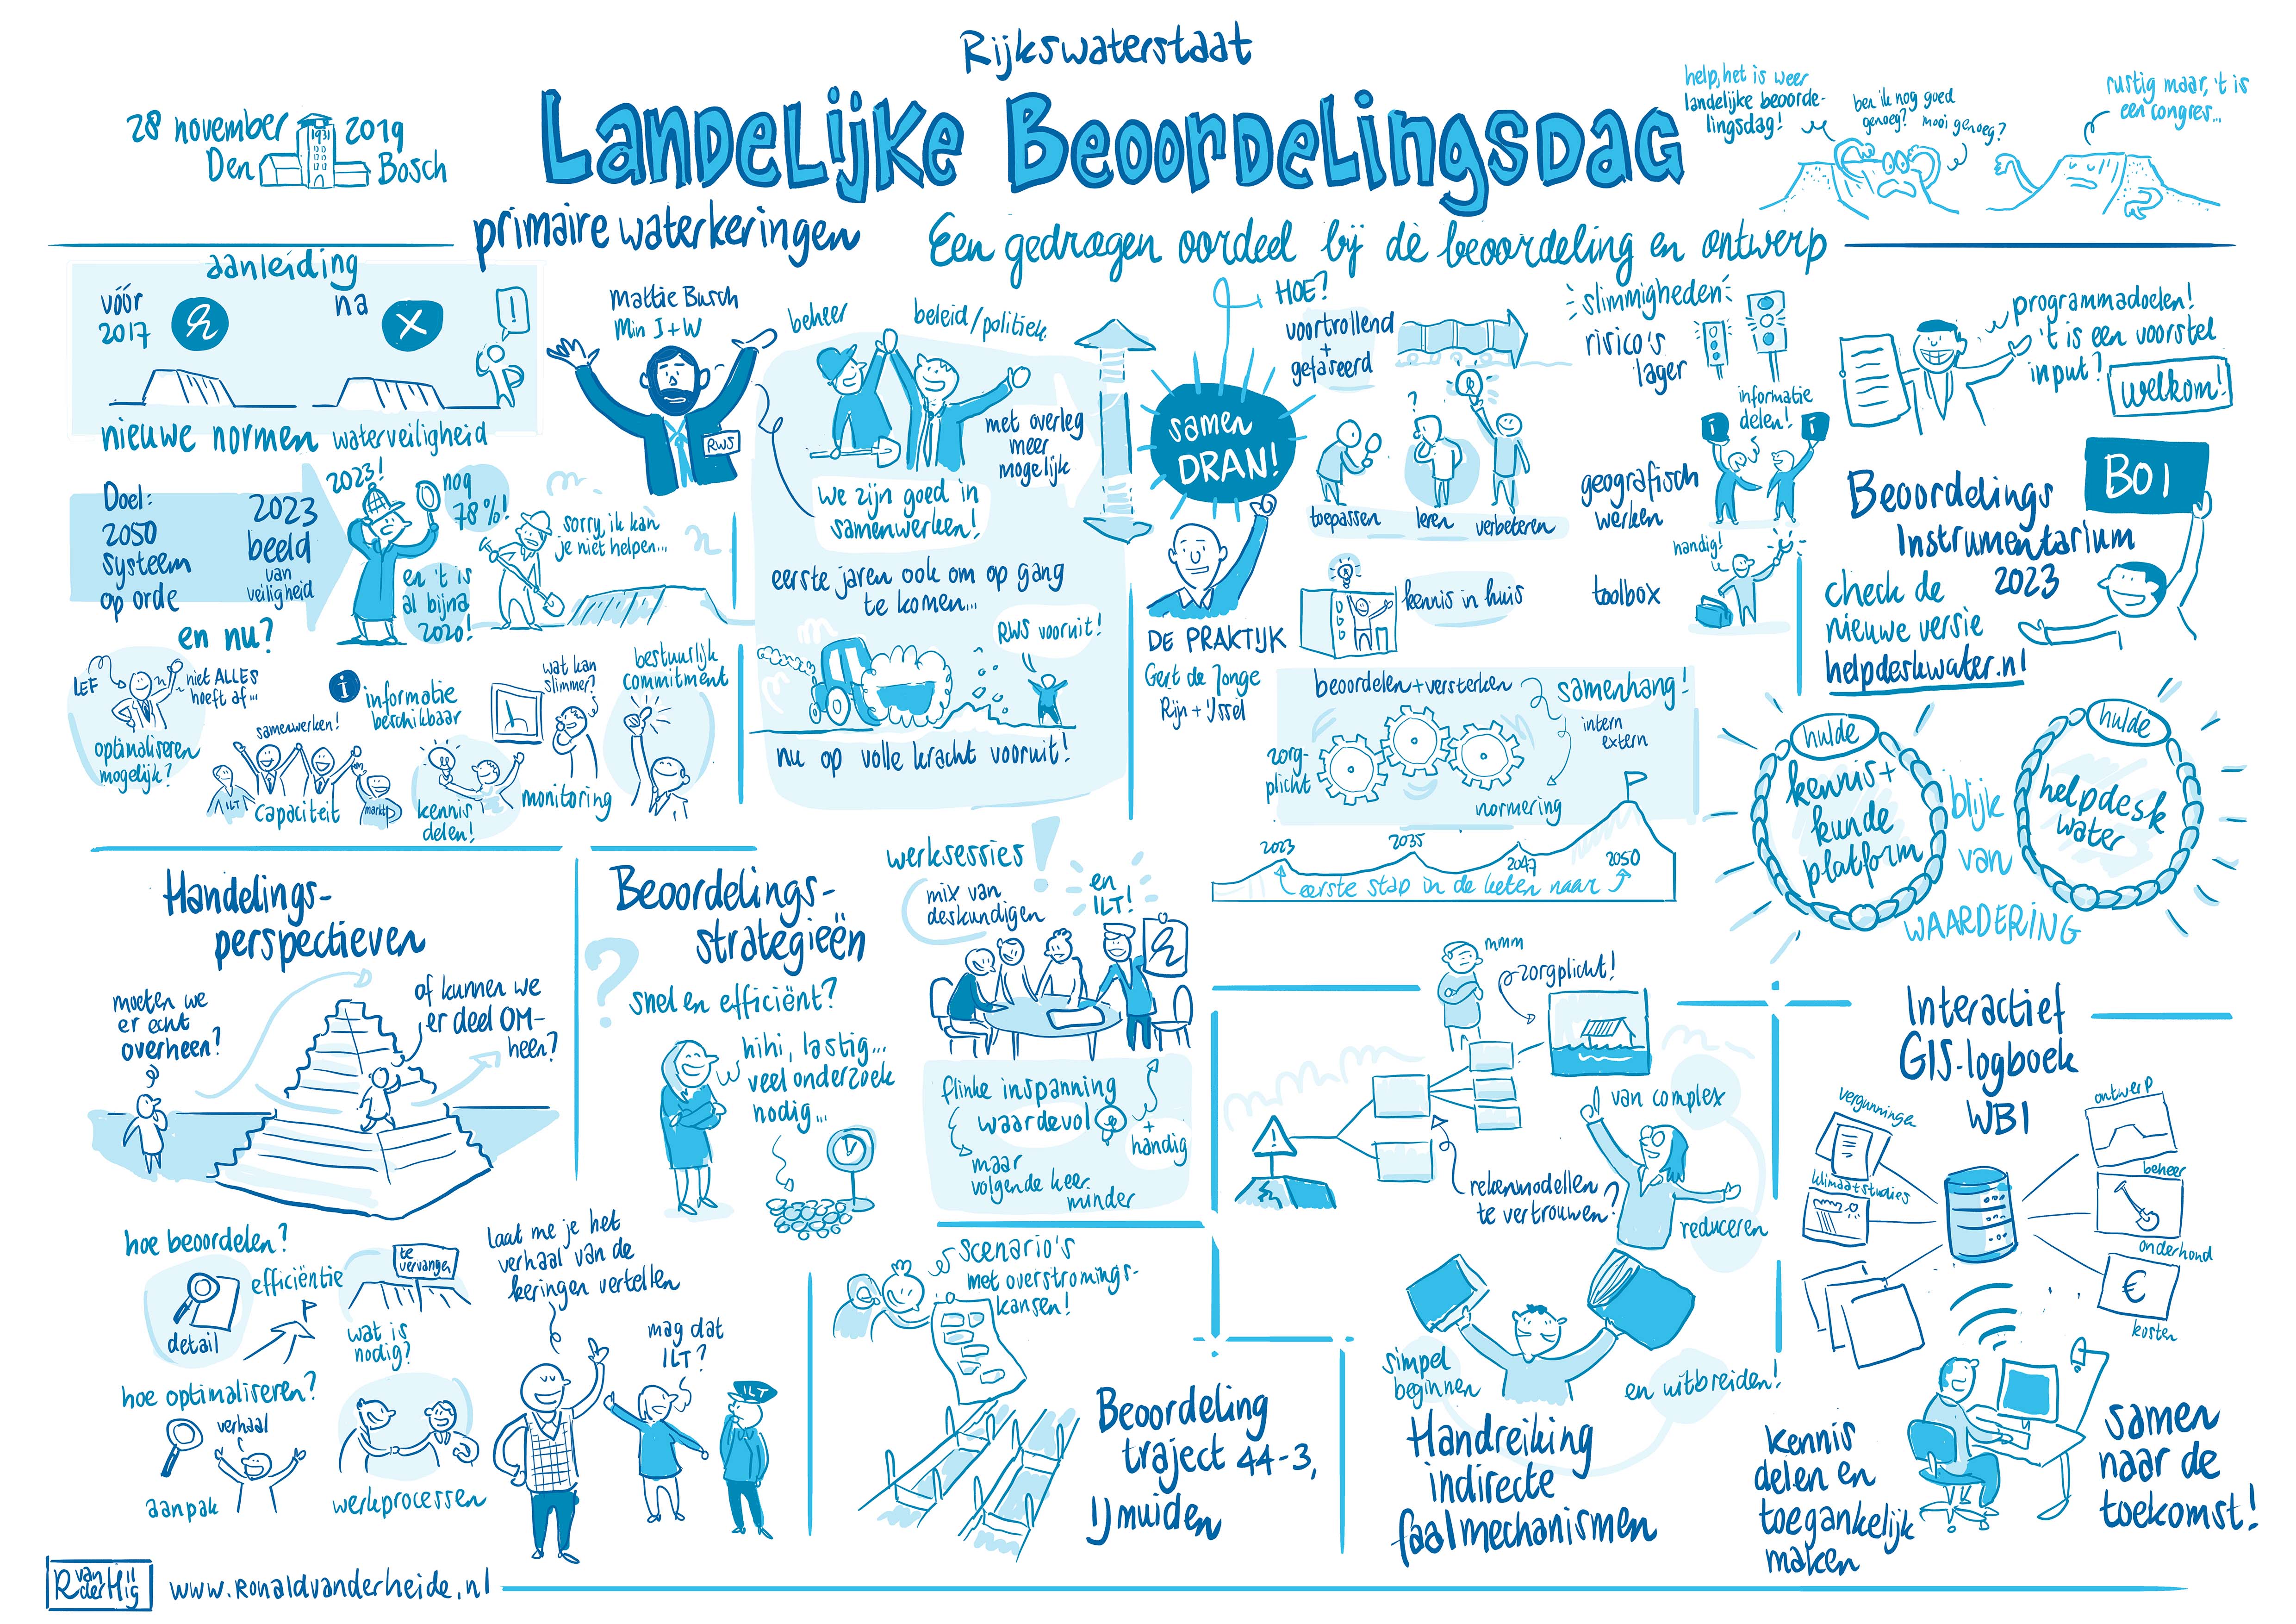 Rijkswaterstaat
28 november 2019
1931
Den Bosch
Landelijke Beoordelingsdag
primaire waterkeringen
Een gedragen oordeel bij dè beoordeling en ontwerp
help, het is weer
landelijke beoorde-
lingsdag!
ben ik nog goed
genoeg? mooi genoeg?
rustig maar, 't is
een congres...
aanleiding
vóór
2017
na
X
!
nieuwe normen waterveiligheid
Doel:
2050
systeem
op orde
2023
beeld
van
veiligheid
2023!
nog
78%!
en 't is
al bijna
2020!
sorry, ik kan
je niet helpen...
en nu?
LEF
niet ALLES
hoeft af...
optimaliseren
mogelijk?
samenwerken!
ILT
capaciteit
markt
i
informatie
beschikbaar
kennis
delen!
wat kan
slimmer?
monitoring
bestuurlijk
commitment
Mattie Busch
Min I+W
RWS
beheer
beleid/politiek
met overleg
meer
mogelijk
we zijn goed in
samenwerken!
eerste jaren ook om op gang
te komen...
RWS vooruit!
nu op volle kracht vooruit!
samen
DRAN!
DE PRAKTIJK
Gert de Jonge
Rijn + IJssel
HOE?
voortrollend
+
gefaseerd
?
toepassen
leren
verbeteren
kennis in huis
slimmigheden
risico's
lager
informatie
delen!
i
i
geografisch
werken
handig!
toolbox
beoordelen+versterken
samenhang!
intern
extern
zorg-
plicht
normering
2023
2035
2047
2050
eerste stap in de keten naar
programmadoelen!
't is een voorstel
input?
welkom!
BOI
Beoordelings
Instrumentarium
2023
check de
nieuwe versie
helpdeskwater.nl
hulde
kennis+
kunde
platform
blijk
van
WAARDERING
hulde
helpdesk
water
Handelings-
perspectieven
moeten we
er echt
overheen?
of kunnen we
er deel OM-
heen?
hoe beoordelen?
detail
efficiëntie
te
vervangen
wat is
nodig?
hoe optimaliseren?
verhaal
aanpak
werkprocessen
laat me je het
verhaal van de
keringen vertellen
mag dat
ILT?
ILT
Beoordelings-
strategieën
?
snel en efficiënt?
hihi, lastig...
veel onderzoek
nodig...
werksessies
!
mix van
deskundigen
en
ILT!
flinke inspanning
waardevol
+
handig
maar
volgende keer
minder
scenario's
met overstromings-
kansen!
Beoordeling
traject 44-3,
IJmuiden
mmm
zorgplicht!
!
rekenmodellen
te vertrouwen?
van complex
reduceren
simpel
beginnen
en uitbreiden!
Handreiking
indirecte
faalmechanismen
Interactief
GIS-logboek
WBI
vergunningen
klimaatstudies
ontwerp
beheer
onderhoud
€
kosten
kennis
delen en
toegankelijk
maken
samen
naar de
toekomst!
www.ronaldvanderheide.nl